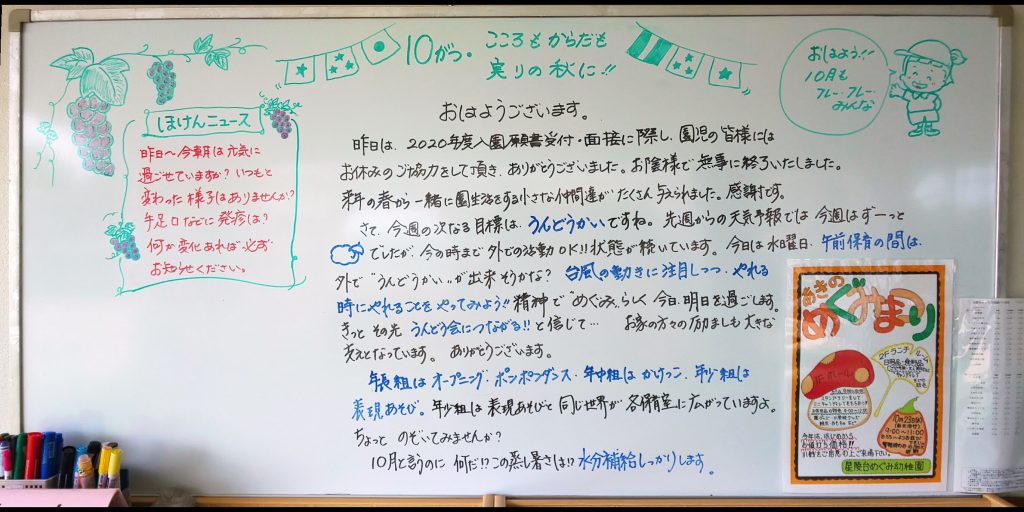 10がつ。
こころもからだも
実りの秋に!!
おはよう!!
10月も
フレー・フレー・
みんな
ほけんニュース
昨日～今朝は元気に
過ごせていますか? いつもと
変わった様子はありませんか?
手足口などに発疹は?
何か変化あれば必ず
お知らせください。
おはようございます。
昨日は、2020年度入園願書受付・面接に際し、園児の皆様には
お休みのご協力をして頂き、ありがとうございました。お陰様で無事に終了いたしました。
来年の春から一緒に園生活をする小さな仲間達が、たくさん与えられました。感謝です。
さて、今週の次なる目標は、うんどうかいですね。先週からの天気予報では今週はずーっと
でしたが、今の時まで外での活動OK!!状態が続いています。今日は水曜日、午前保育の間は、
外で"うんどうかい"が出来そうかな? 台風の動きに注目しつつ、やれる
時にやれることをやってみよう!! 精神で"めぐみ"らしく今日、明日を過ごします。
きっとその先うんどう会につながる!!と信じて… お家の方々の励ましも大きな
支えとなっています。ありがとうございます。
年長組はオープニング・ポンポンダンス・年中組はかけっこ、年少組は
表現あそび。年少組は表現あそびと同じ世界が各保育室に広がっていますよ。
ちょっとのぞいてみませんか?
10月と言うのに何だ!?この蒸し暑さは!?水分補給しっかりします。
あきの
めぐみまつり
1F ホール
2F ランチルーム
10月23日(水)
9:00～11:00
星陵台めぐみ幼稚園